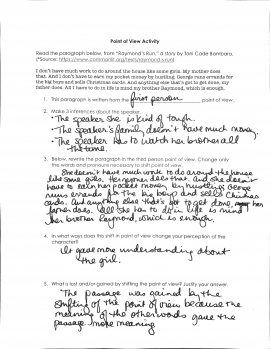 Point of View Activity
Read the paragraph below, from "Raymond's Run," a story by Toni Cade Bambara.
(*Source: https://www.commonlit.org/texts/raymond-s-run)
I don't have much work to do around the house like some girls. My mother does
that. And I don't have to earn my pocket money by hustling; George runs errands for
the big boys and sells Christmas cards. And anything else that's got to get done, my
father does. All I have to do in life is mind my brother Raymond, which is enough.
1. This paragraph is written from the first person point of view.
2. Make 3 inferences about the speaker.
• The speaker she is kind of tough.
• The speaker's family doesn't have much money.
• The speaker has to watch her brother all
the time.
3. Below, rewrite the paragraph in the third person point of view. Change only
the words and pronouns necessary to shift point of view.
She doesn't have much work to do around the house
like some girls. Her mother does that. And she doesn't
have to earn her pocket money by hustling; George
runs errands for the big boys and sells Christmas
cards. And anything else that's got to get done, her
father does. All she has to do in life is mind
her brother Raymond, which is enough.
4. In what ways does this shift in point of view change your perception of the
character?
It gave more understanding about
the girl.
5. What is lost and/or gained by shifting the point of view? Justify your answer.
The passage was gained by the
shifting of the point of view because the
meaning of the other words gave the
passage more meaning